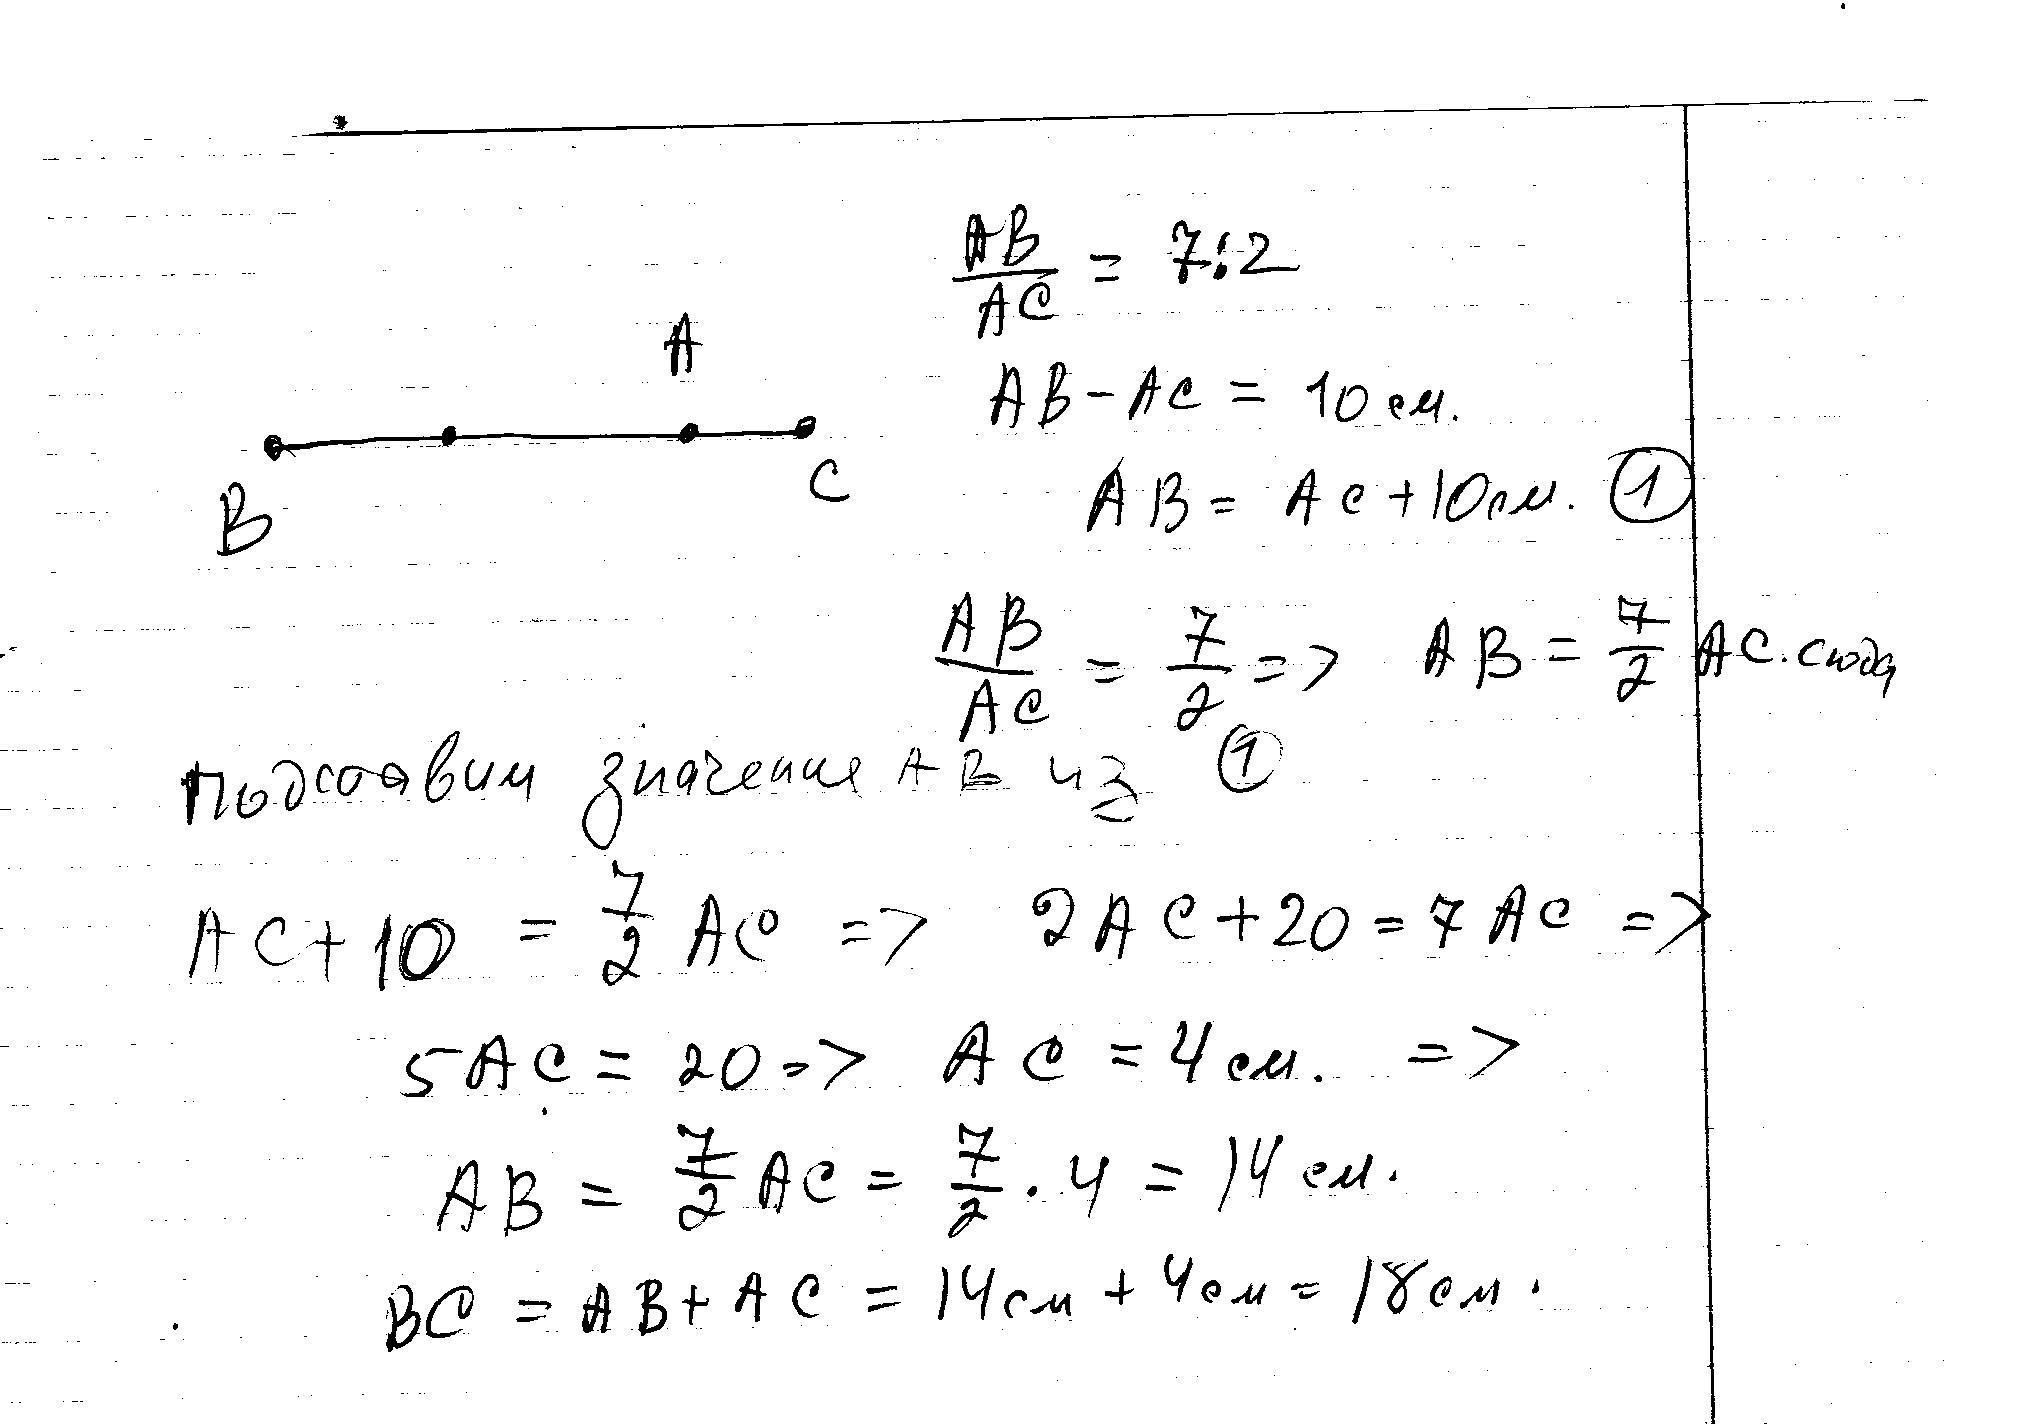 AB/AC = 7:2
A
AB - AC = 10 см.
B
C
AB = AC + 10 см. ①
AB/AC = 7/2 => AB = 7/2 AC. сюда
подставим значение AB из ①
AC + 10 = 7/2 AC => 2AC + 20 = 7AC =>
5AC = 20 => AC = 4 см. =>
AB = 7/2 AC = 7/2 · 4 = 14 см.
BC = AB + AC = 14 см + 4 см = 18 см.